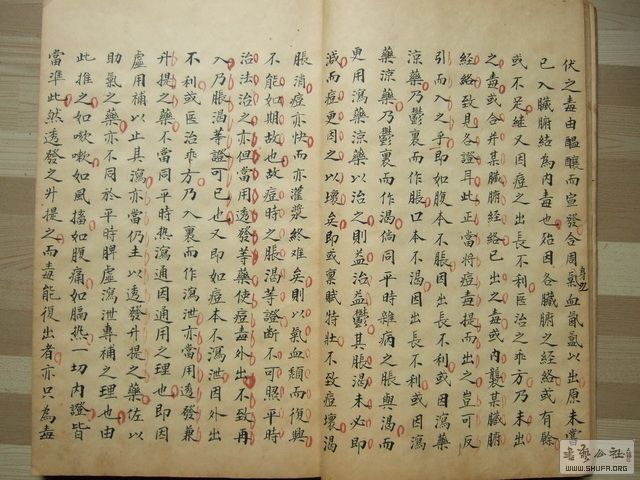 伏之毒由醞釀而宣發合周身之氣血氤氳以出原未嘗
已入臟腑結為內毒也殆因各臟腑之經絡或有餘
或不足繼又因痘之出長不利医治之乖方乃未出
之毒或合并某臟腑經絡已出之毒或內襲某臟腑
經絡致見各證耳此正當將痘毒提而出之豈可反
引而入之乎即如腹本不脹因出長不利或因瀉
涼藥乃鬱裏而作脹口本不渴因出長不利或因瀉
藥涼藥乃鬱裏而作渴倘同平時雜病之脹與渴而
更用瀉藥涼藥以治之則益治益鬱其脹渴未必即
減而痘更因之以壞矣即或稟賦特壯不致痘壞渴
脹消痘亦快而亦灌漿終難矣則以氣血纇而復興
不能如期故也故痘時之脹渴等證斷不可照平時
治法治之亦但當用透發等藥使痘毒外出不致再
入乃脹渴等證可已也又即如痘本不瀉泄因外出
不利或医治乖方乃入裏而作瀉泄亦當用透發兼
升提之藥不當同平時熱瀉通因通用之理也即因
虛用補以止其瀉亦當仍主以透發升提之藥佐以
助氣之藥亦不同於平時脾虛瀉泄專補之理也由
此推之如咳嗽如風搐如腹痛如腸熱一切內證皆
當準此然透發之升提之而毒能復出者亦只為毒
書藝公社
WWW.SHUFA.ORG